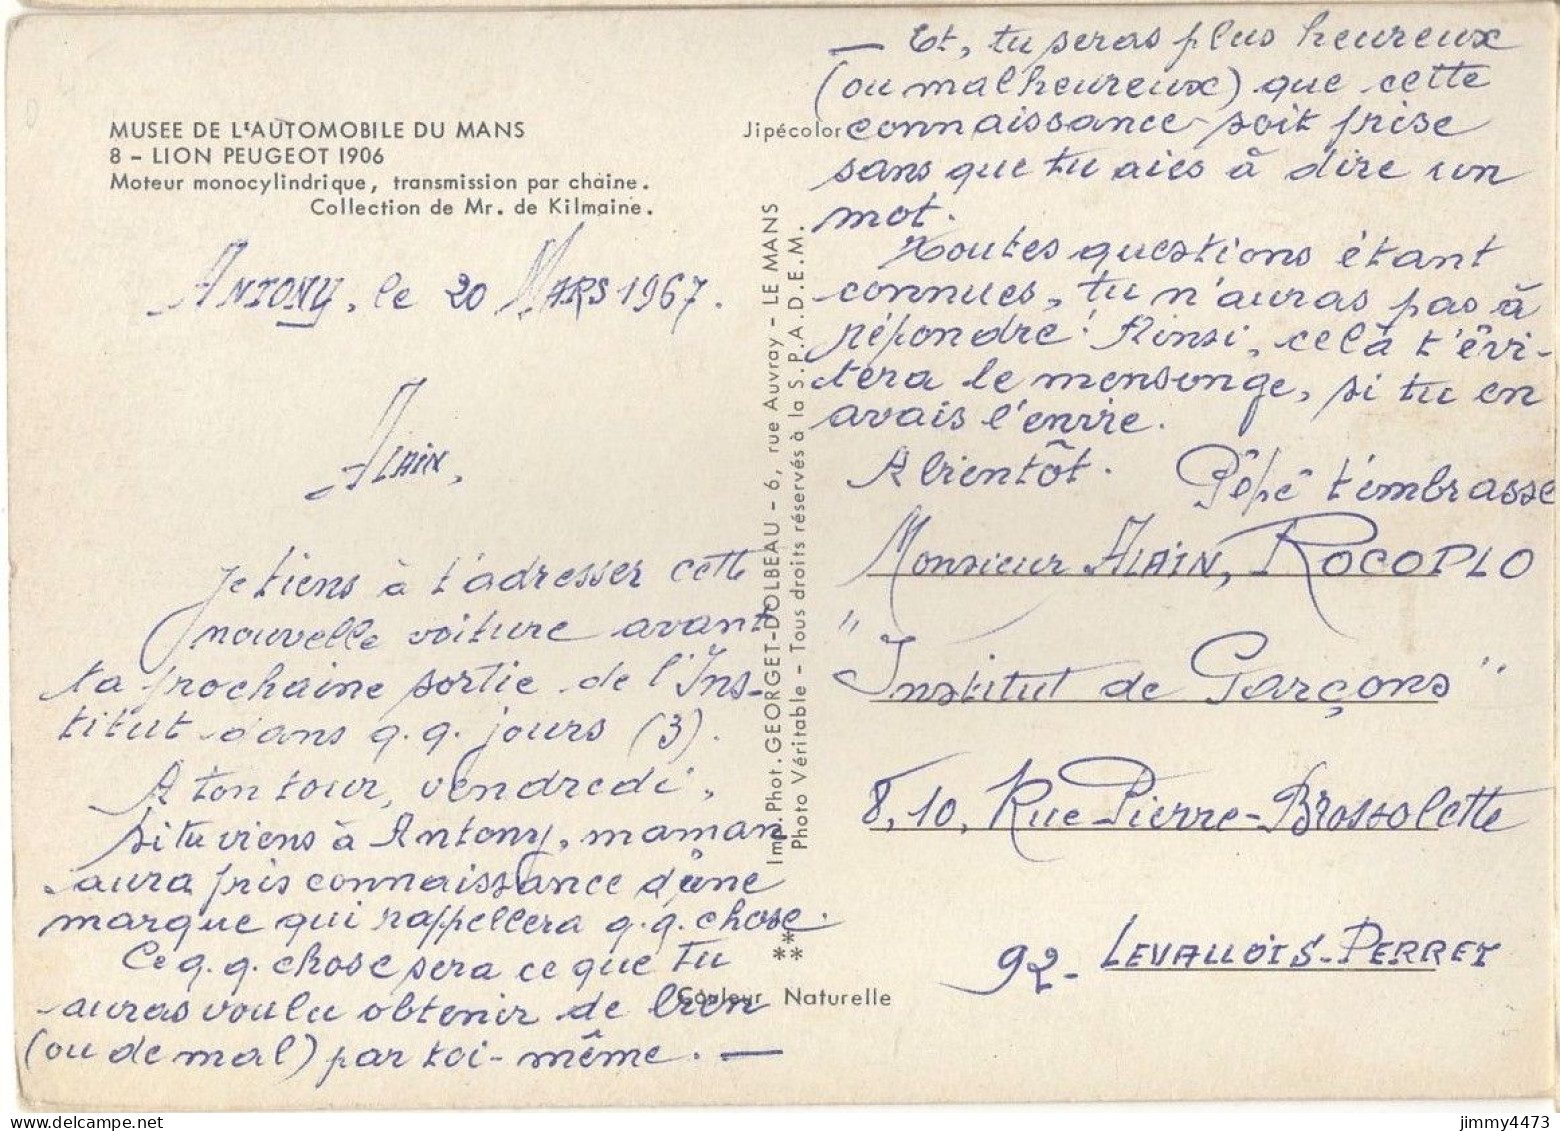 MUSEE DE L'AUTOMOBILE DU MANS
8 - LION PEUGEOT 1906
Moteur monocylindrique, transmission par chaine.
Collection de Mr. de Kilmaine.
Antony, le 20 Mars 1967.
Alain,
Je tiens à t'adresser cette
nouvelle voiture avant
ta prochaine sortie de l'Ins-
titut dans q.q. jours (3).
A ton tour, vendredi,
si tu viens à Antony, maman
aura pris connaissance d'une
marque qui rappellera q.q. chose.
Ce q.q. chose sera ce que tu
auras voulu obtenir de bien
(ou de mal) par toi-même. —
Jipécolor
Imp. Phot. GEORGET-DOLBEAU - 6, rue Auvray - LE MANS
Photo Véritable - Tous droits réservés à la S.P.A.D.E.M.
**
**
Couleur Naturelle
— Et, tu seras plus heureux
(ou malheureux) que cette
connaissance soit prise
sans que tu aies à dire un
mot.
Toutes questions étant
connues, tu n'auras pas à
répondre! Ainsi, celà t'évi-
tera le mensonge, si tu en
avais l'envie.
A bientôt. Pépé t'embrasse
Monsieur Alain, ROCOPLO
"Institut de Garçons"
8, 10, Rue Pierre-Brossolette
92- LEVALLOIS-PERRET
jimmy4473